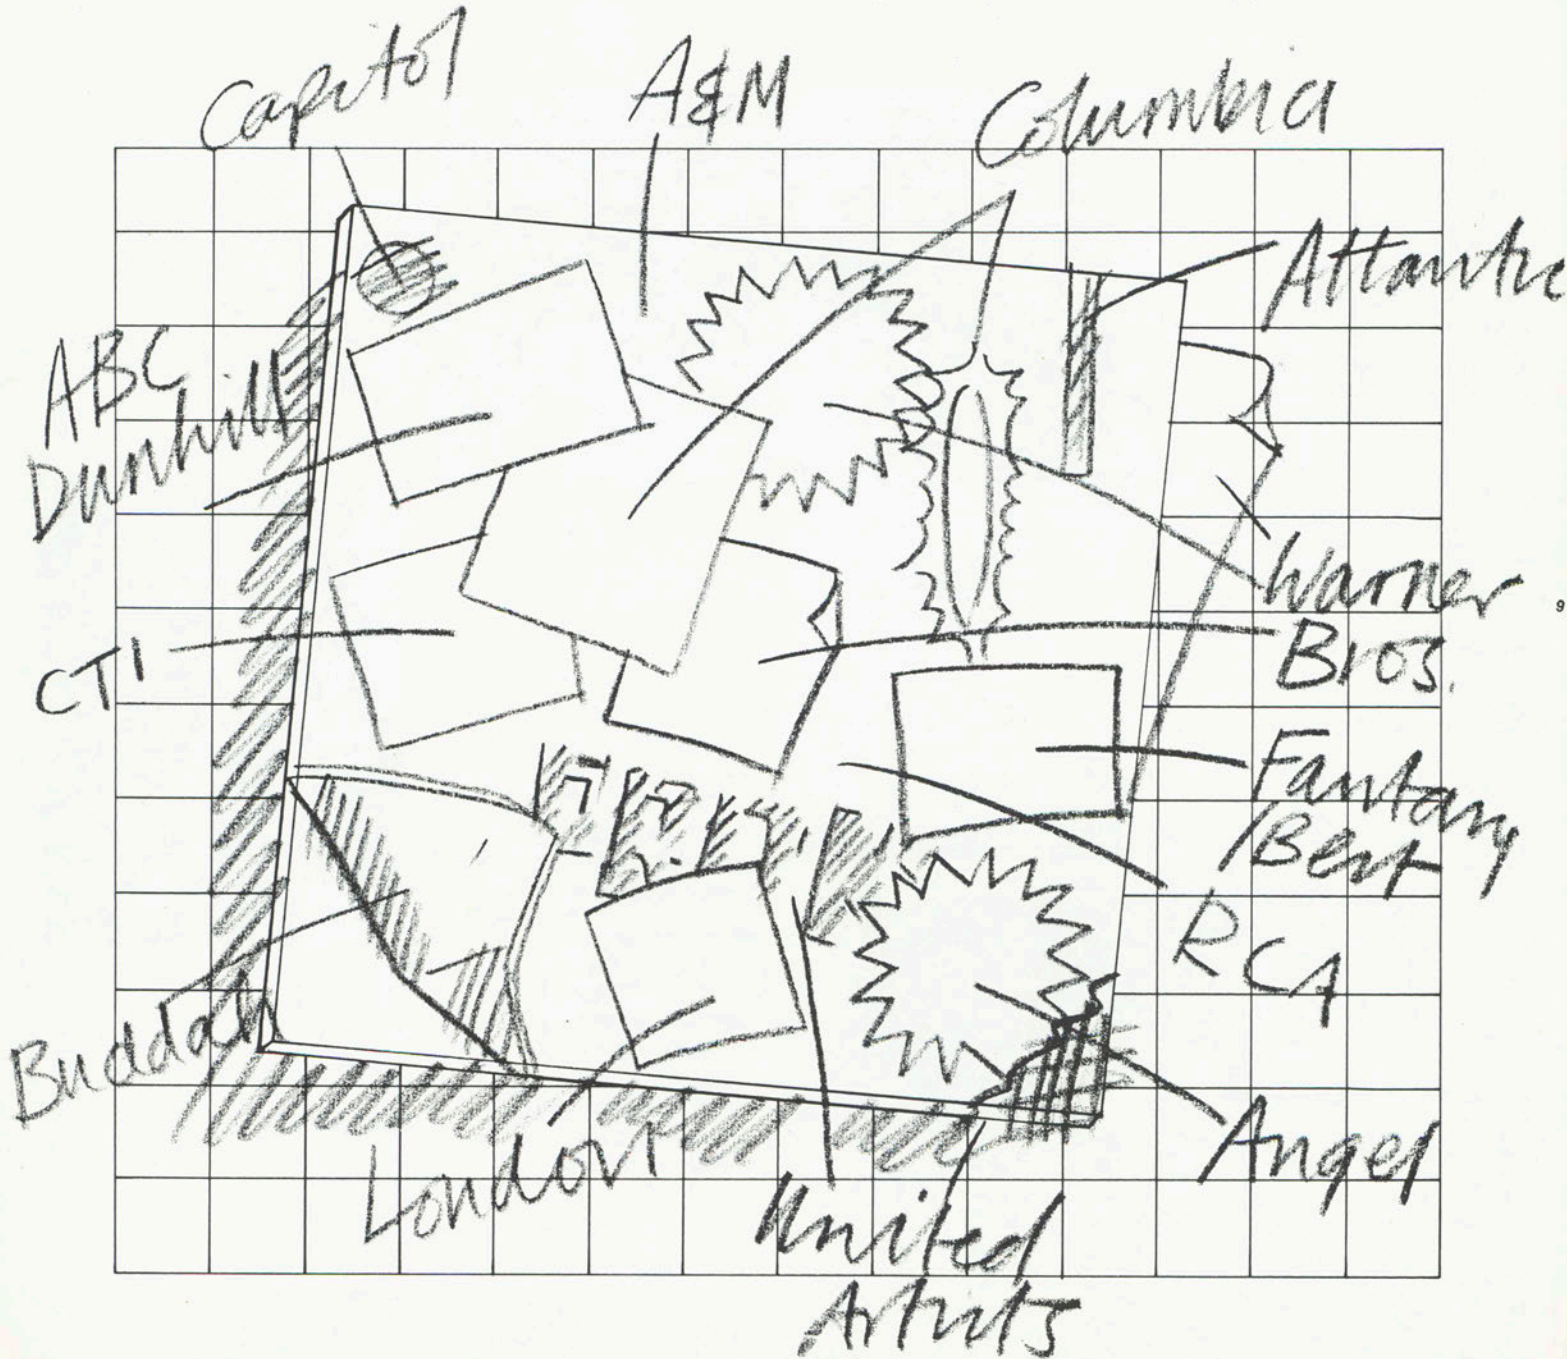 Capitol
A&M
Columbia
Atlantic
ABC
Dunhill
Warner
Bros.
9
CTI
Fantasy
/Best
RCA
Buddah
London
Angel
United
Artists